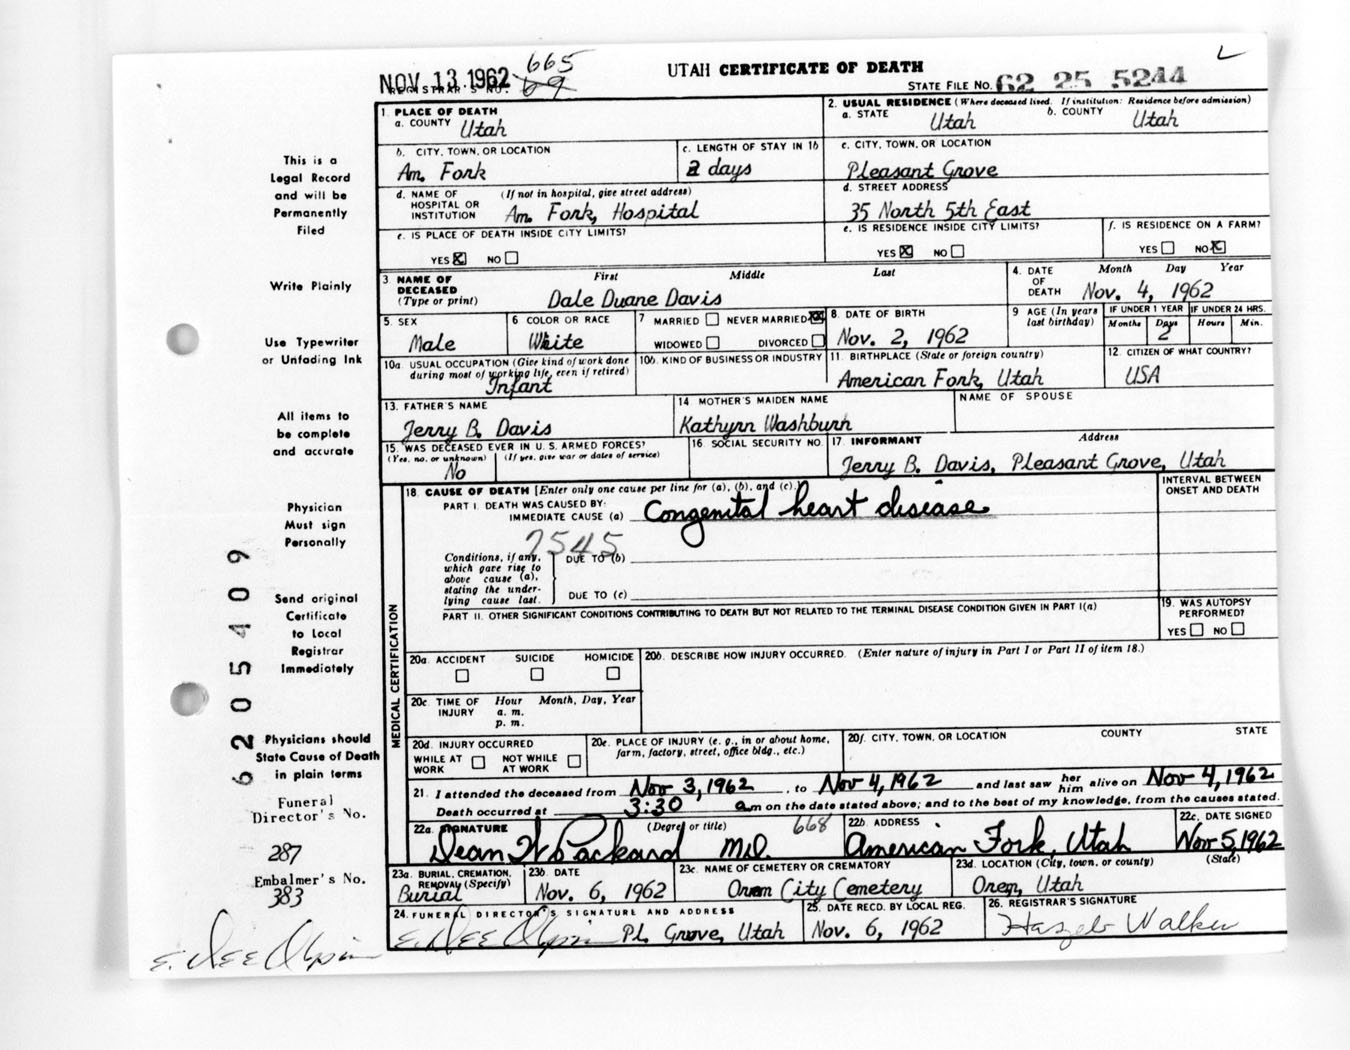 NOV. 13. 1962 665
REGISTRAR'S NO. 69
UTAH CERTIFICATE OF DEATH
STATE FILE NO. 62 25 5244
1. PLACE OF DEATH
a. COUNTY Utah
2. USUAL RESIDENCE (Where deceased lived. If institution: Residence before admission)
a. STATE Utah b. COUNTY Utah
b. CITY, TOWN, OR LOCATION
Am. Fork
c. LENGTH OF STAY IN 1b
2 days
c. CITY, TOWN, OR LOCATION
Pleasant Grove
d. NAME OF HOSPITAL OR INSTITUTION (If not in hospital, give street address)
Am. Fork, Hospital
d. STREET ADDRESS
35 North 5th East
e. IS PLACE OF DEATH INSIDE CITY LIMITS?
YES X NO
e. IS RESIDENCE INSIDE CITY LIMITS?
YES X NO
f. IS RESIDENCE ON A FARM?
YES NO X
3 NAME OF DECEASED (Type or print) First Middle Last
Dale Duane Davis
4. DATE OF DEATH Month Day Year
Nov. 4, 1962
5. SEX
Male
6 COLOR OR RACE
White
7 MARRIED NEVER MARRIED X
WIDOWED DIVORCED
8. DATE OF BIRTH
Nov. 2, 1962
9 AGE (In years last birthday)
IF UNDER 1 YEAR IF UNDER 24 HRS.
Months Days Hours Min.
2
10a. USUAL OCCUPATION (Give kind of work done during most of working life, even if retired)
Infant
10b. KIND OF BUSINESS OR INDUSTRY
11. BIRTHPLACE (State or foreign country)
American Fork, Utah
12. CITIZEN OF WHAT COUNTRY?
USA
13. FATHER'S NAME
Jerry B. Davis
14 MOTHER'S MAIDEN NAME
Kathyrn Washburn
NAME OF SPOUSE
15. WAS DECEASED EVER IN U. S. ARMED FORCES?
(Yes, no, or unknown) (If yes, give war or dates of service)
No
16. SOCIAL SECURITY NO.
17. INFORMANT Address
Jerry B. Davis, Pleasant Grove, Utah
MEDICAL CERTIFICATION
18. CAUSE OF DEATH [Enter only one cause per line for (a), (b), and (c).]
INTERVAL BETWEEN ONSET AND DEATH
PART I. DEATH WAS CAUSED BY:
IMMEDIATE CAUSE (a) Congenital heart disease
7545
Conditions, if any, which gave rise to above cause (a), stating the underlying cause last.
DUE TO (b)
DUE TO (c)
PART II. OTHER SIGNIFICANT CONDITIONS CONTRIBUTING TO DEATH BUT NOT RELATED TO THE TERMINAL DISEASE CONDITION GIVEN IN PART I(a)
19. WAS AUTOPSY PERFORMED?
YES NO
20a. ACCIDENT SUICIDE HOMICIDE
20b. DESCRIBE HOW INJURY OCCURRED. (Enter nature of injury in Part I or Part II of item 18.)
20c. TIME OF INJURY Hour Month, Day, Year
a. m.
p. m.
20d. INJURY OCCURRED
WHILE AT WORK NOT WHILE AT WORK
20e. PLACE OF INJURY (e. g., in or about home, farm, factory, street, office bldg., etc.)
20f. CITY, TOWN, OR LOCATION COUNTY STATE
21. I attended the deceased from Nov 3, 1962, to Nov 4, 1962 and last saw her him alive on Nov 4, 1962
Death occurred at 3:30 a m on the date stated above; and to the best of my knowledge, from the causes stated.
22a. SIGNATURE (Degree or title) 668
Dean W Packard M.D.
22b. ADDRESS
American Fork, Utah
22c. DATE SIGNED
Nov 5, 1962
23a. BURIAL, CREMATION, REMOVAL (Specify)
Burial
23b. DATE
Nov. 6, 1962
23c. NAME OF CEMETERY OR CREMATORY
Orem City Cemetery
23d. LOCATION (City, town, or county) (State)
Orem, Utah
24. FUNERAL DIRECTOR'S SIGNATURE AND ADDRESS
Pl. Grove, Utah
25. DATE RECD. BY LOCAL REG.
Nov. 6, 1962
26. REGISTRAR'S SIGNATURE
Walker
This is a
Legal Record
and will be
Permanently
Filed
Write Plainly
Use Typewriter
or Unfading Ink
All items to
be complete
and accurate
Physician
Must sign
Personally
Send original
Certificate
to Local
Registrar
Immediately
Physicians should
State Cause of Death
in plain terms
Funeral
Director's No.
287
Embalmer's No.
383
6205409